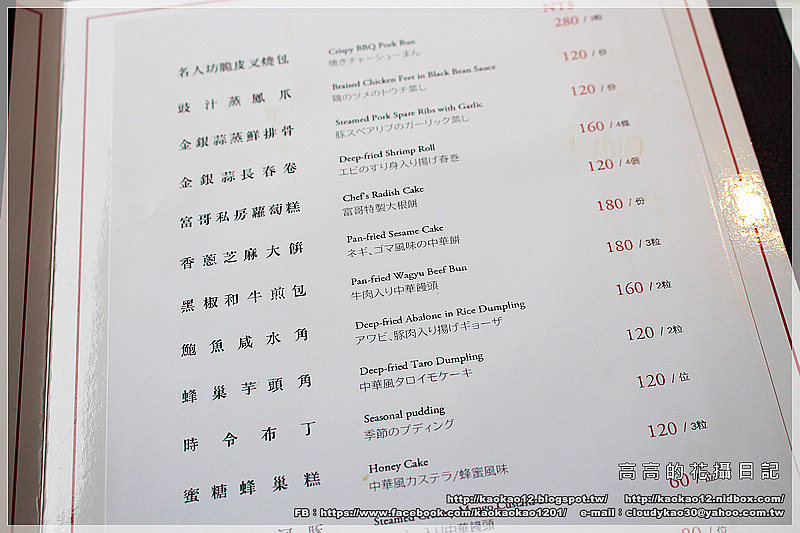 NT$
名人坊脆皮叉燒包 Crispy BBQ Pork Bun 280 / 3粒
焼きチャーシューまん
豉汁蒸鳳爪 Braised Chicken Feet in Black Bean Sauce 120 / 份
鶏のツメのトウチ蒸し
金銀蒜蒸鮮排骨 Steamed Pork Spare Ribs with Garlic 120 / 份
豚スペアリブのガーリック蒸し
金銀蒜長春卷 Deep-fried Shrimp Roll 160 / 4條
エビのすり身入り揚げ春巻
富哥私房蘿蔔糕 Chef's Radish Cake 120 / 4個
富哥特製大根餅
香蔥芝麻大餅 Pan-fried Sesame Cake 180 / 份
ネギ、ゴマ風味の中華餅
黑椒和牛煎包 Pan-fried Wagyu Beef Bun 180 / 3粒
牛肉入り中華饅頭
鮑魚咸水角 Deep-fried Abalone in Rice Dumpling 160 / 2粒
アワビ、豚肉入り揚げギョーザ
蜂巢芋頭角 Deep-fried Taro Dumpling 120 / 2粒
中華風タロイモケーキ
時令布丁 Seasonal pudding 120 / 位
季節のプディング
蜜糖蜂巢糕 Honey Cake 120 / 3粒
中華風カステラ/蜂蜜風味
高高的花攝日記
60
http://kaokao12.blogspot.tw/ http://kaokao12.nidbox.com/
FB：https://www.facebook.com/kaokaokao1201/ e-mail：cloudykao30@yahoo.com.tw
Steamed Mango Custard
中華饅頭
80